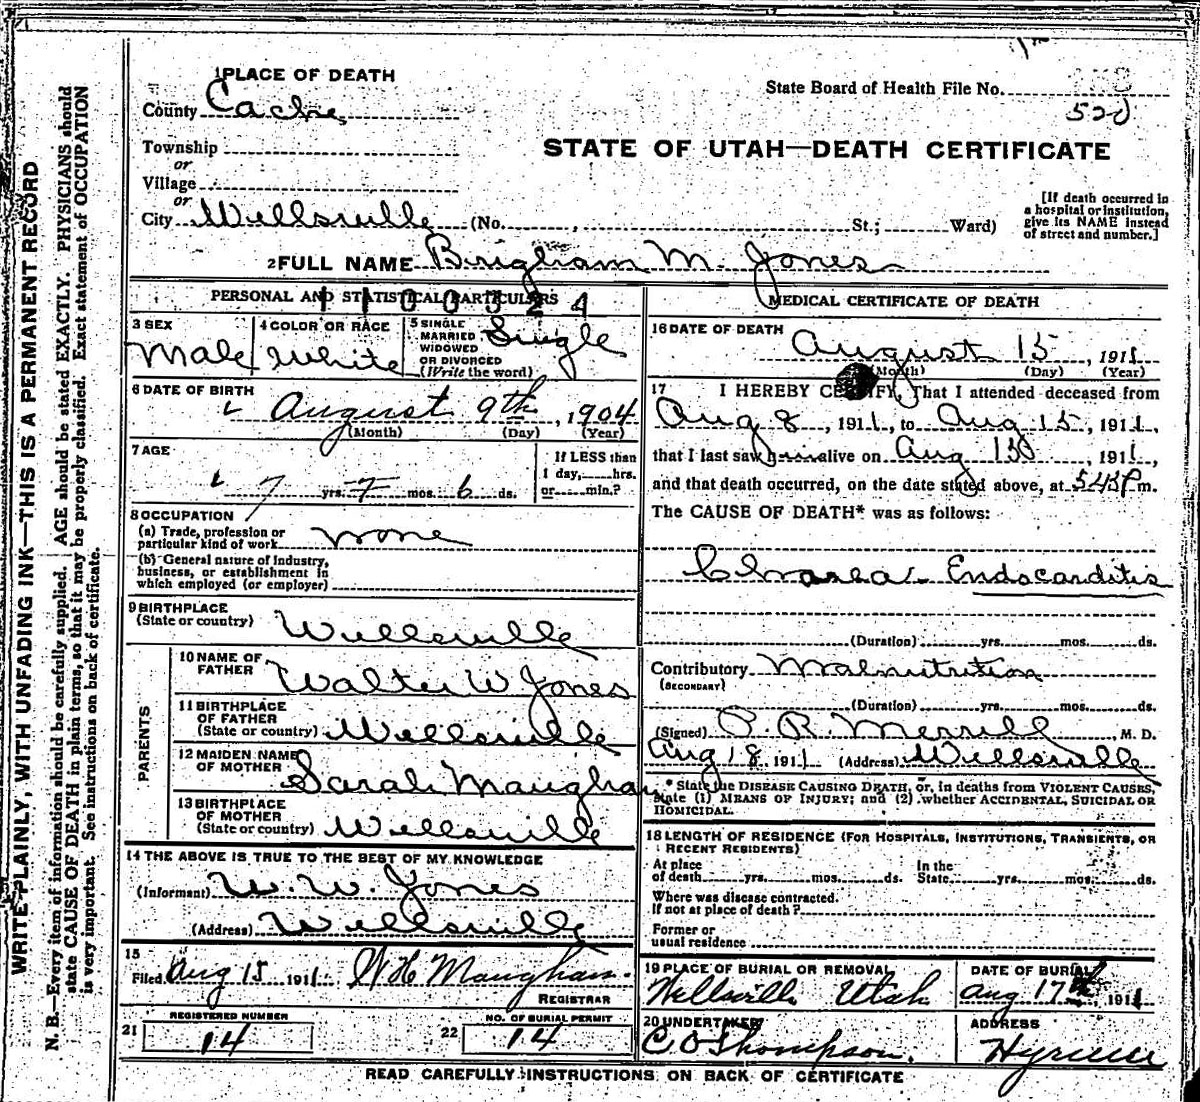 1 PLACE OF DEATH
County Cache
State Board of Health File No.
520
Township
or
Village
or
City Wellsville (No. , St.; Ward)
STATE OF UTAH—DEATH CERTIFICATE
[If death occurred in a hospital or institution, give its NAME instead of street and number.]
2 FULL NAME Brigham M. Jones
PERSONAL AND STATISTICAL PARTICULARS
3 SEX Male
4 COLOR OR RACE White
5 SINGLE MARRIED WIDOWED OR DIVORCED (Write the word) Single
6 DATE OF BIRTH
August 9th, 1904
(Month) (Day) (Year)
7 AGE
7 yrs. 7 mos. 6 ds.
If LESS than 1 day, hrs. or min.?
8 OCCUPATION
(a) Trade, profession or particular kind of work none
(b) General nature of industry, business, or establishment in which employed (or employer)
9 BIRTHPLACE
(State or country) Wellsville
PARENTS
10 NAME OF FATHER Walter W Jones
11 BIRTHPLACE OF FATHER
(State or country) Wellsville
12 MAIDEN NAME OF MOTHER Sarah Maughan
13 BIRTHPLACE OF MOTHER
(State or country) Wellsville
14 THE ABOVE IS TRUE TO THE BEST OF MY KNOWLEDGE
(Informant) W. W. Jones
(Address) Wellsville
15
Filed Aug 15 1911 W H Maughan.
REGISTRAR
21 REGISTERED NUMBER 14
22 NO. OF BURIAL PERMIT 14
MEDICAL CERTIFICATE OF DEATH
16 DATE OF DEATH
August 15, 1911
(Month) (Day) (Year)
17 I HEREBY CERTIFY, That I attended deceased from
Aug 8, 1911, to Aug 15, 1911,
that I last saw him alive on Aug 15, 1911,
and that death occurred, on the date stated above, at 545 P m.
The CAUSE OF DEATH* was as follows:
Endocarditis
(Duration) yrs. mos. ds.
Contributory Malnutrition
(SECONDARY)
(Duration) yrs. mos. ds.
(Signed) P. R. Merrill, M. D.
Aug 18, 1911 (Address) Wellsville
* State the DISEASE CAUSING DEATH, or, in deaths from VIOLENT CAUSES, state (1) MEANS OF INJURY; and (2) whether ACCIDENTAL, SUICIDAL OR HOMICIDAL.
18 LENGTH OF RESIDENCE (FOR HOSPITALS, INSTITUTIONS, TRANSIENTS, OR RECENT RESIDENTS)
At place of death yrs. mos. ds. In the State yrs. mos. ds.
Where was disease contracted. If not at place of death?
Former or usual residence
19 PLACE OF BURIAL OR REMOVAL
Wellsville Utah
DATE OF BURIAL
Aug 17th, 1911
20 UNDERTAKER
C O Thompson.
ADDRESS
Hyrum
READ CAREFULLY INSTRUCTIONS ON BACK OF CERTIFICATE
WRITE PLAINLY, WITH UNFADING INK—THIS IS A PERMANENT RECORD
N. B.—Every item of information should be carefully supplied. AGE should be stated EXACTLY. PHYSICIANS should
state CAUSE OF DEATH in plain terms, so that it may be properly classified. Exact statement of OCCUPATION
is very important. See instructions on back of certificate.